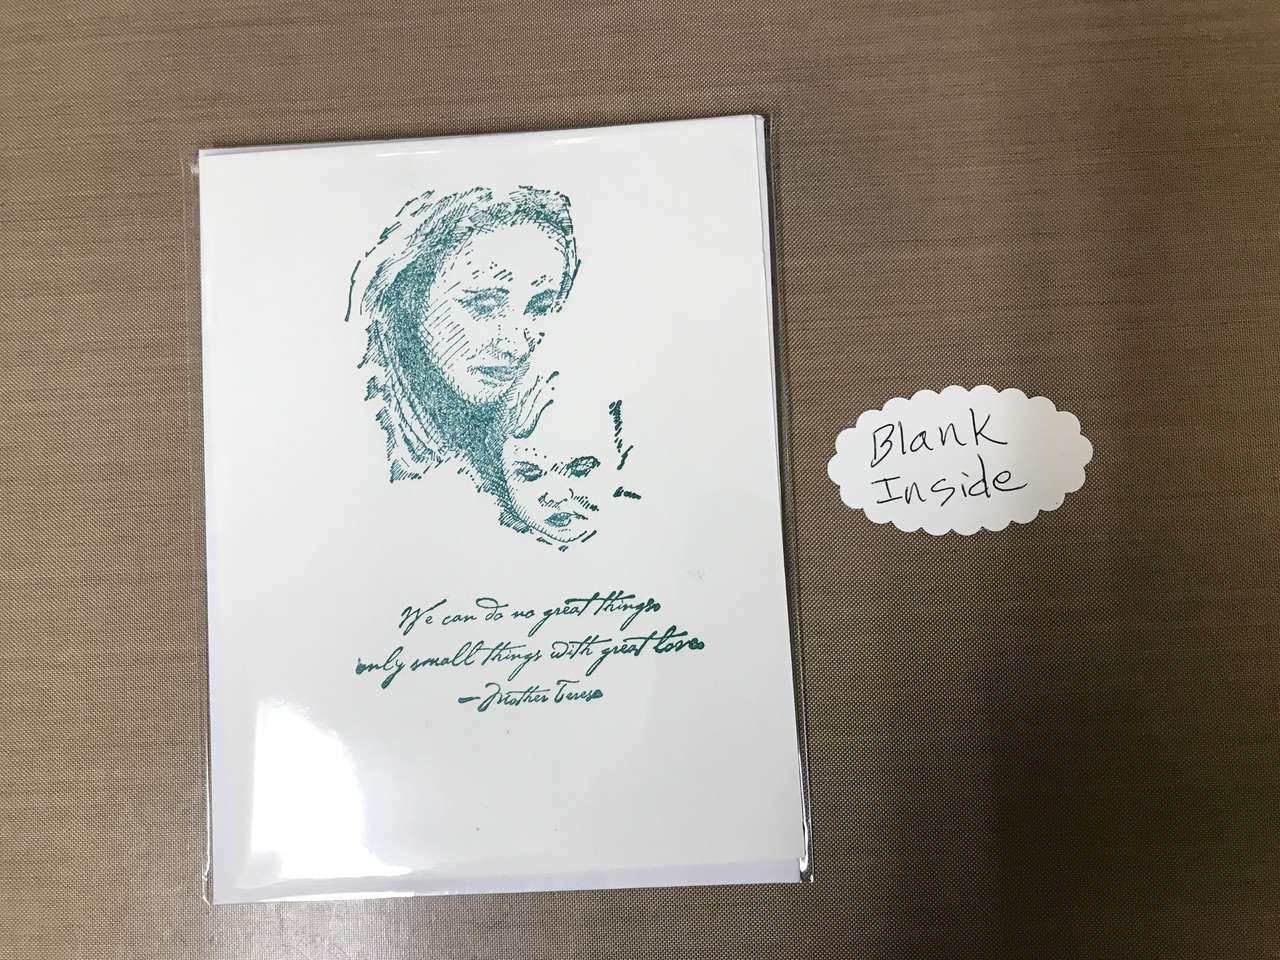 We can do no great things,
only small things with great love.
—Mother Teresa
Blank
Inside